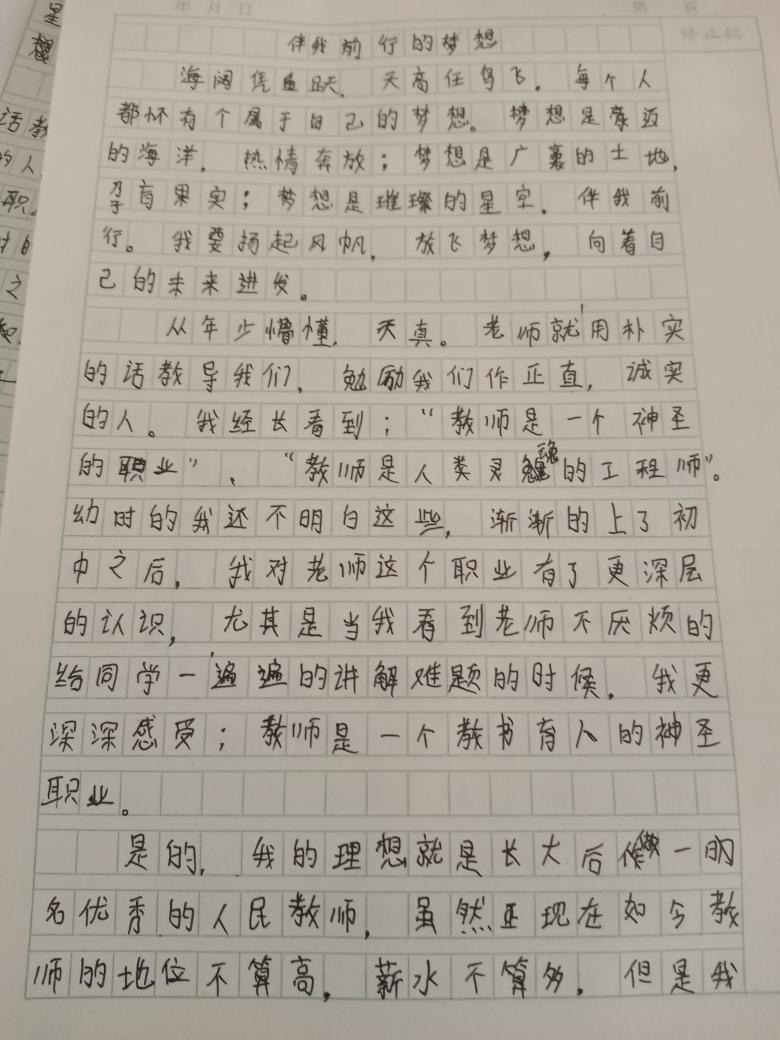 年 月 日 第 页
修正栏
伴我前行的梦想
海阔凭鱼跃,天高任鸟飞。每个人
都怀有个属于自己的梦想。梦想是豪迈
的海洋,热情奔放;梦想是广袤的土地,
孕育果实;梦想是璀璨的星空,伴我前
行。我要扬起风帆,放飞梦想,向着自
己的未来进发。
从年少懵懂,天真。老师就用朴实
的话教导我们,勉励我们作正直,诚实
的人。我经长看到;“教师是一个神圣
的职业”、“教师是人类灵魂的工程师”。
幼时的我还不明白这些,渐渐的上了初
中之后,我对老师这个职业有了更深层
的认识,尤其是当我看到老师不厌烦的
给同学一遍遍的讲解难题的时候,我更
深深感受;教师是一个教书育人的神圣
职业。
是的,我的理想就是长大后做一明
名优秀的人民教师,虽然正现在如今教
师的地位不算高,薪水不算多,但是我
星
想
话教
的人
职
时的
之